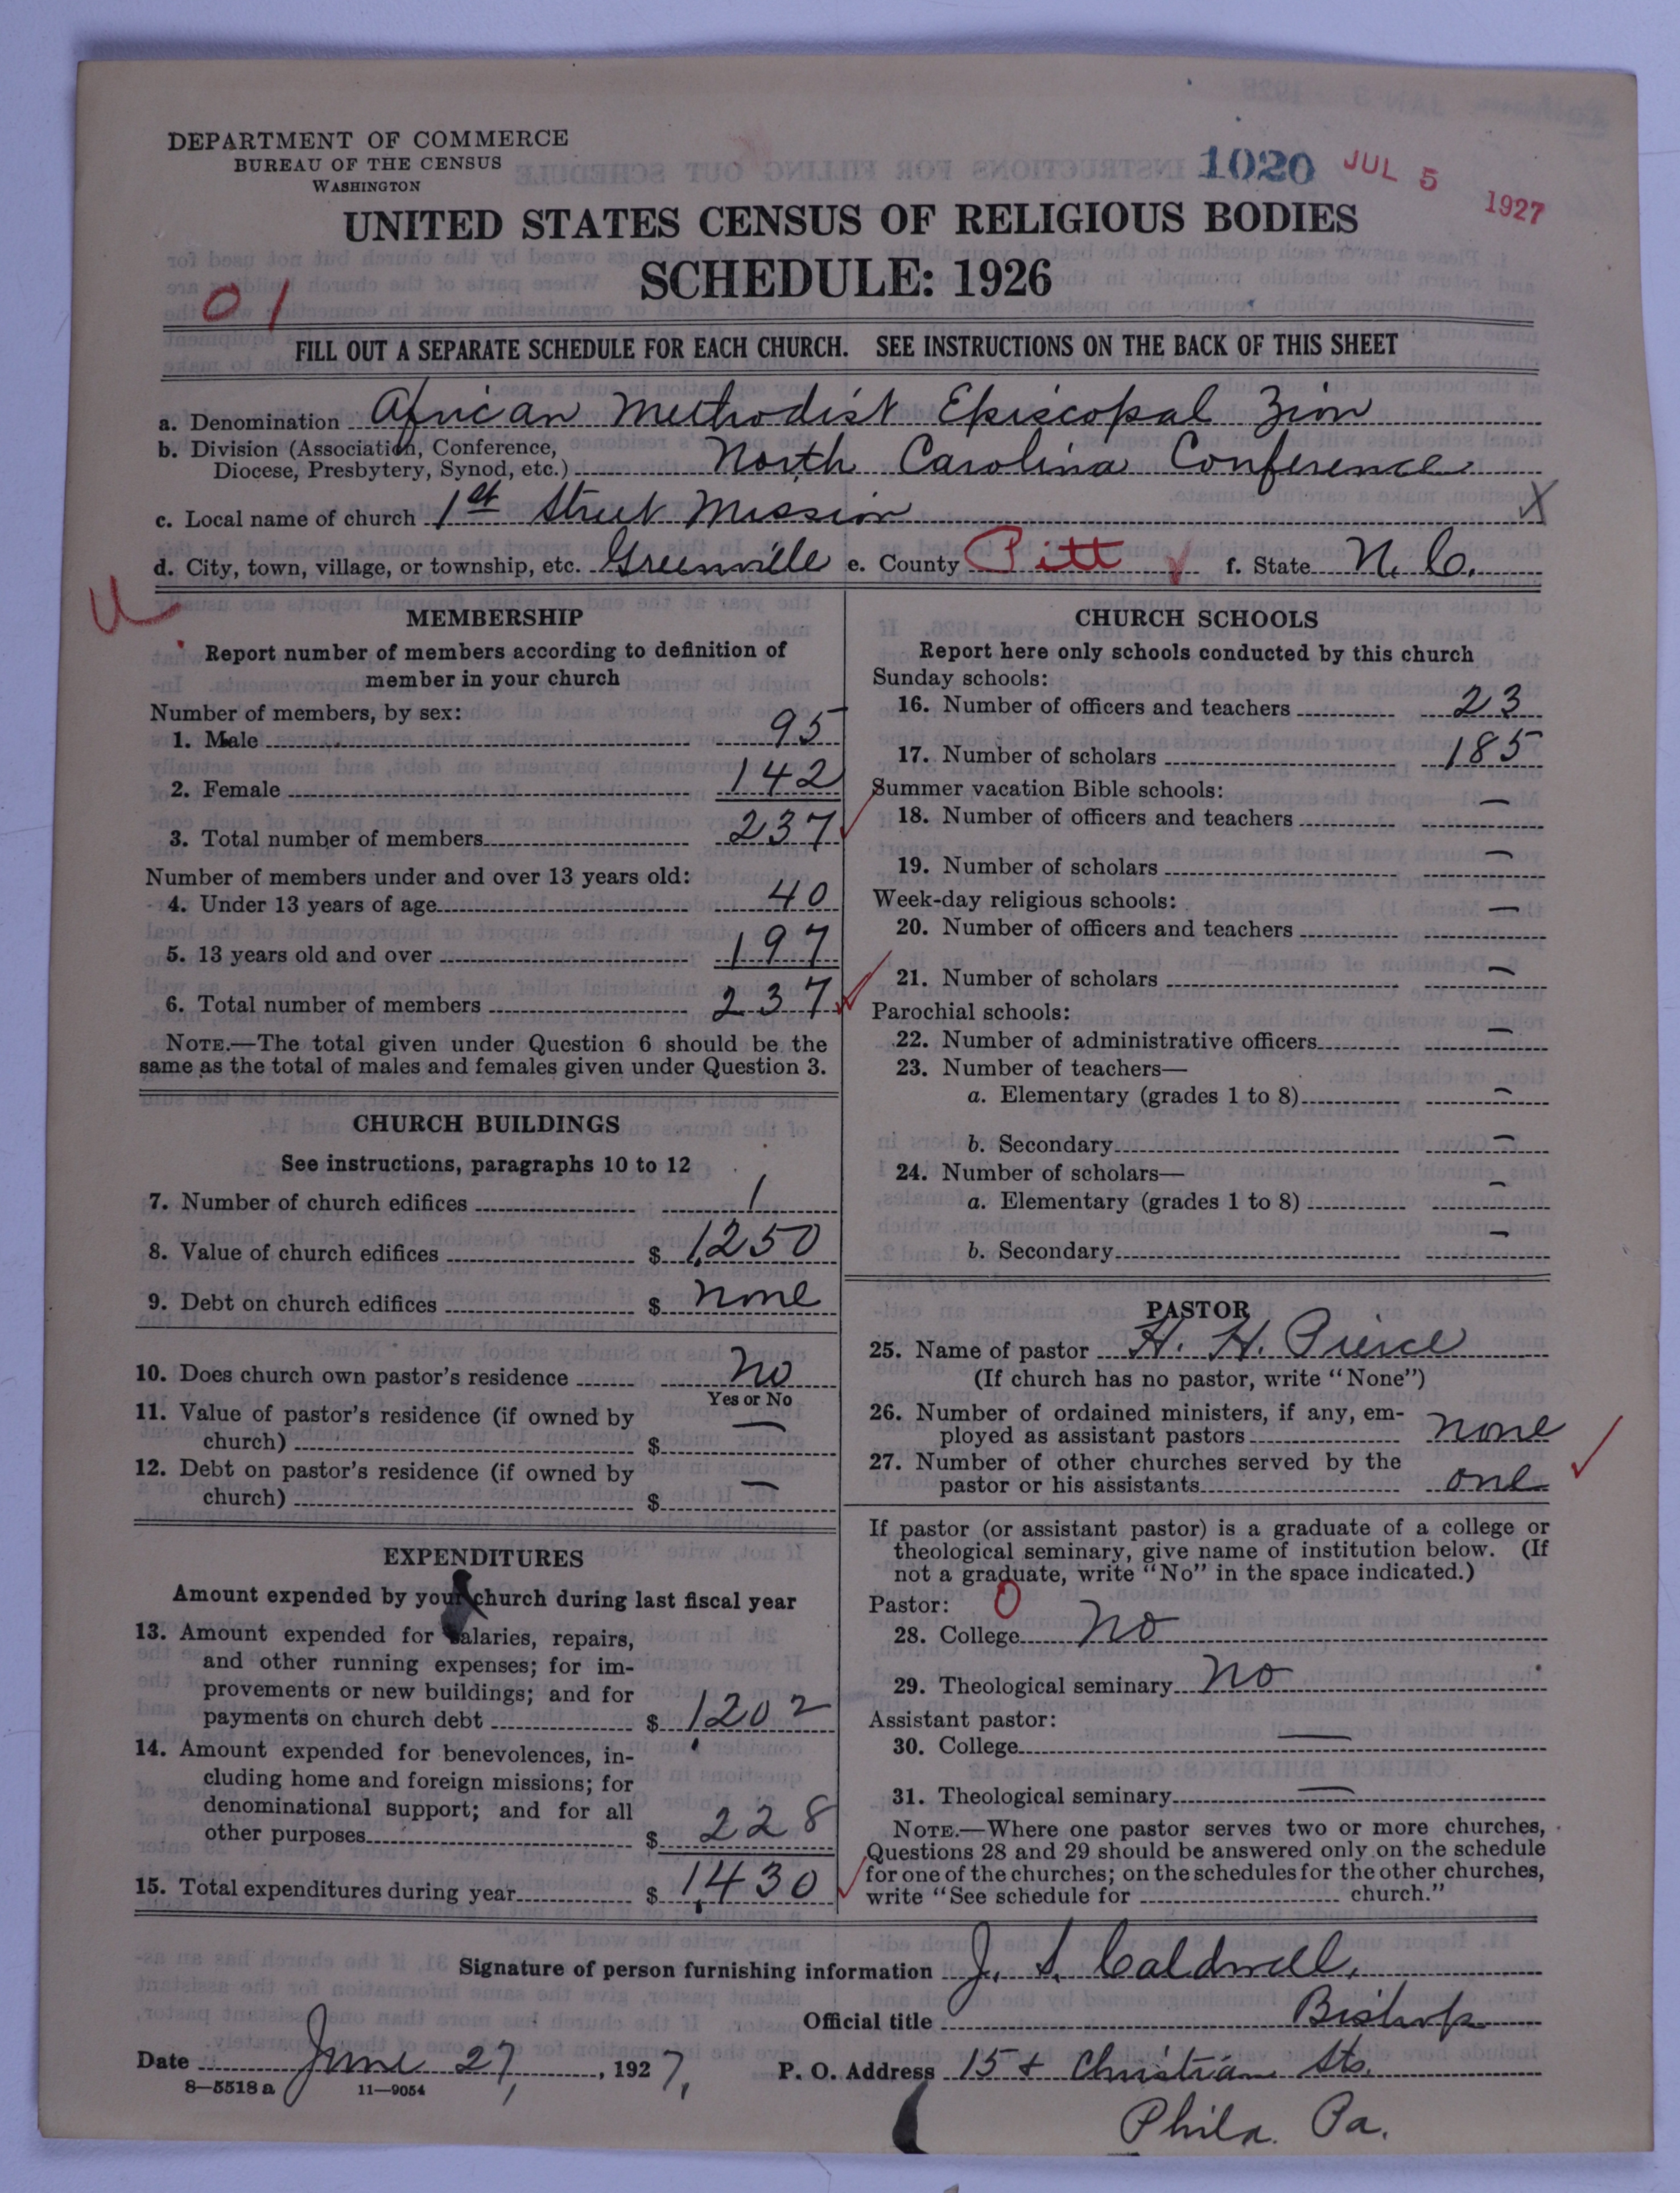 DEPARTMENT OF COMMERCE
BUREAU OF THE CENSUS
WASHINGTON
1020
JUL 5 1927
UNITED STATES CENSUS OF RELIGIOUS BODIES
SCHEDULE: 1926
01
FILL OUT A SEPARATE SCHEDULE FOR EACH CHURCH. SEE INSTRUCTIONS ON THE BACK OF THIS SHEET
a. Denomination African Methodist Episcopal Zion
b. Division (Association, Conference,
Diocese, Presbytery, Synod, etc.) North Carolina Conference
c. Local name of church 1st Street Mission X
d. City, town, village, or township, etc. Greenville e. County Pitt f. State N. C.
MEMBERSHIP
Report number of members according to definition of
member in your church
Number of members, by sex:
1. Male 95
2. Female 142
3. Total number of members 237
Number of members under and over 13 years old:
4. Under 13 years of age 40
5. 13 years old and over 197
6. Total number of members 237
NOTE.—The total given under Question 6 should be the
same as the total of males and females given under Question 3.
CHURCH BUILDINGS
See instructions, paragraphs 10 to 12
7. Number of church edifices 1
8. Value of church edifices $ 1,250
9. Debt on church edifices $ none
10. Does church own pastor's residence no
Yes or No
11. Value of pastor's residence (if owned by
church) $ —
12. Debt on pastor's residence (if owned by
church) $ —
EXPENDITURES
Amount expended by your church during last fiscal year
13. Amount expended for salaries, repairs,
and other running expenses; for im-
provements or new buildings; and for
payments on church debt $ 1,202
14. Amount expended for benevolences, in-
cluding home and foreign missions; for
denominational support; and for all
other purposes $ 228
15. Total expenditures during year $ 1,430
CHURCH SCHOOLS
Report here only schools conducted by this church
Sunday schools:
16. Number of officers and teachers 23
17. Number of scholars 185
Summer vacation Bible schools:
18. Number of officers and teachers —
19. Number of scholars —
Week-day religious schools:
20. Number of officers and teachers —
21. Number of scholars —
Parochial schools:
22. Number of administrative officers —
23. Number of teachers—
a. Elementary (grades 1 to 8) —
b. Secondary —
24. Number of scholars—
a. Elementary (grades 1 to 8) —
b. Secondary —
PASTOR
25. Name of pastor H. H. Pierce
(If church has no pastor, write "None")
26. Number of ordained ministers, if any, em-
ployed as assistant pastors none
27. Number of other churches served by the
pastor or his assistants one
If pastor (or assistant pastor) is a graduate of a college or
theological seminary, give name of institution below. (If
not a graduate, write "No" in the space indicated.)
Pastor: 0
28. College no
29. Theological seminary no
Assistant pastor:
30. College —
31. Theological seminary —
NOTE.—Where one pastor serves two or more churches,
Questions 28 and 29 should be answered only on the schedule
for one of the churches; on the schedules for the other churches,
write "See schedule for church."
Signature of person furnishing information J. S. Caldwell,
Official title Bishop
Date June 27, 1927, P. O. Address 15 & Christian Sts.
8—5518a 11—9054
Phila. Pa.